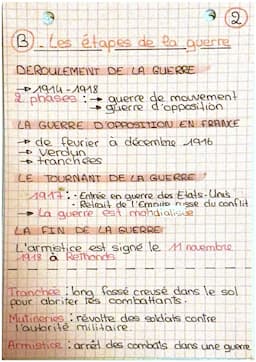 2
B - Les étapes de la guerre
DEROULEMENT DE LA GUERRE
→ 1914 - 1918
2 phases : → guerre de mouvement
→ guerre d'opposition
LA GUERRE D'OPPOSITION EN FRANCE
→ de février à décembre 1916
→ Verdun
→ tranchées
LE TOURNANT DE LA GUERRE
1917 : · Entrée en guerre des Etats-Unis
· Retrait de l'Empire russe du conflit
→ La guerre est mondialisée
LA FIN DE LA GUERRE
L'armistice est signé le 11 novembre
1918 à Rethondes
Tranchée : long fossé creusé dans le sol
pour abriter les combattants.
Mutineries : révolte des soldats contre
l'autorité militaire.
Armistice : arrêt des combats dans une guerre